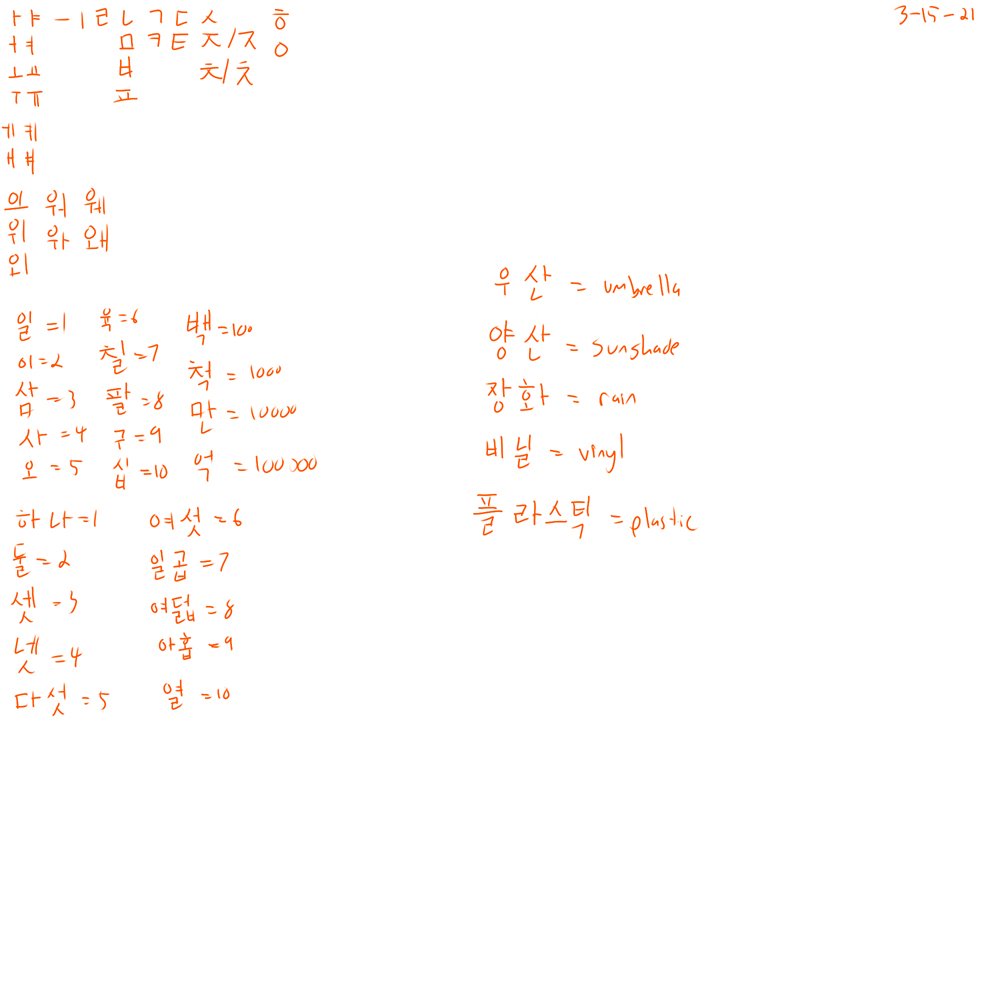 3-15-21
ㅏㅑ ㅡㅣㄹㄴㄱㄷㅅ ㅎ
ㅓㅕ ㅁㅋㅌㅈ/ㅈ ㅇ
ㅗㅛ ㅂ ㅊ/ㅊ
ㅜㅠ ㅍ
ㅔㅖ
ㅐㅒ
의 워 웨
위 와 왜
외
일=1 육=6 백=100
이=2 칠=7 척=1000
삼=3 팔=8 만=10000
사=4 구=9 억=100000
오=5 십=10
하나=1 여섯=6
둘=2 일곱=7
셋=3 여덟=8
넷=4 아홉=9
다섯=5 열=10
우산 = umbrella
양산 = sunshade
장화 = rain
비닐 = vinyl
플라스틱 = plastic